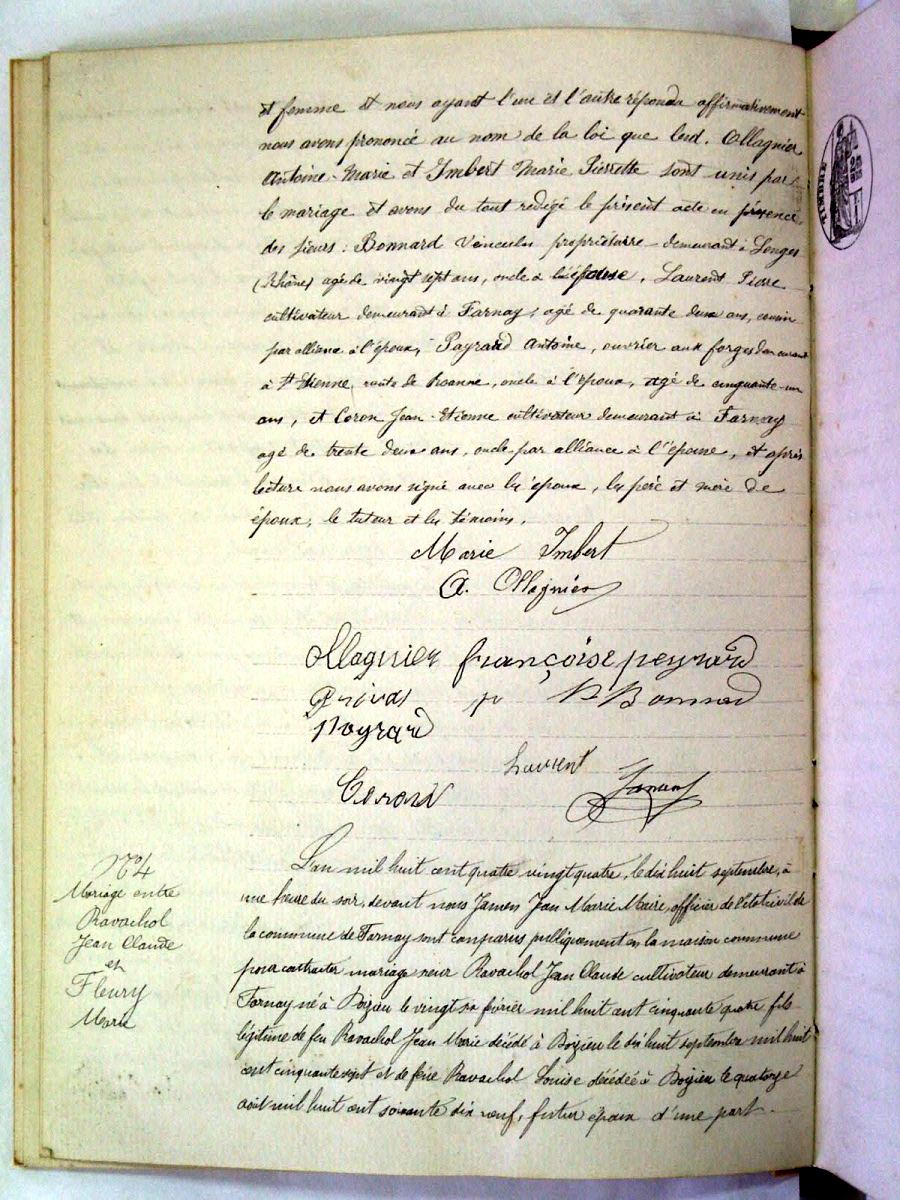 et femme et nous ayant l'un et l'autre répondu affirmativement
nous avons prononcé au nom de la loi que led. Ollagnier
Antoine-Marie et Imbert Marie Pierrette sont unis par
le mariage et avons du tout redigé le présent acte en présence
des sieurs : Bonnard propriétaire demeurant à Longes
(Rhône) agé de vingt sept ans, oncle à l'épouse, Laurent Pierre
cultivateur demeurant à Farnay, agé de quarante deux ans, cousin
par alliance à l'époux, Payrard Antoine, ouvrier aux forges demeurant
à St Etienne, route de Roanne, oncle à l'époux, agé de cinquante-un
ans, et Coron Jean-Etienne cultivateur demeurant à Farnay
agé de trente deux ans, oncle par alliance à l'épouse, et après
lecture nous avons signé avec les époux, les père et mère de
époux, le tuteur et les témoins.
Marie Imbert
A. Ollagnier
Ollagnier françoise peyrard
Bonnard
Peyrard
Laurent Jamen
TIMBRE
N°4
Mariage entre
Ravachol
Jean Claude
et
Fleury
Marie
L'an mil huit cent quatre vingt quatre, le dix huit septembre, à
une heure du soir, devant nous Jamen Jean Marie Maire, officier de l'état civil de
la commune de Farnay sont comparus publiquement en la maison commune
pour contracter mariage sieur Ravachol Jean Claude cultivateur demeurant à
Farnay né à Doizieu le vingt six février mil huit cent cinquante quatre fils
légitime de feu Ravachol Jean Marie décédé à Doizieu le dix huit septembre mil huit
cent cinquante sept et de feue Ravachol Louise décédée à Doizieu le quatorze
août mil huit cent soixante dix neuf, futur époux d'une part.